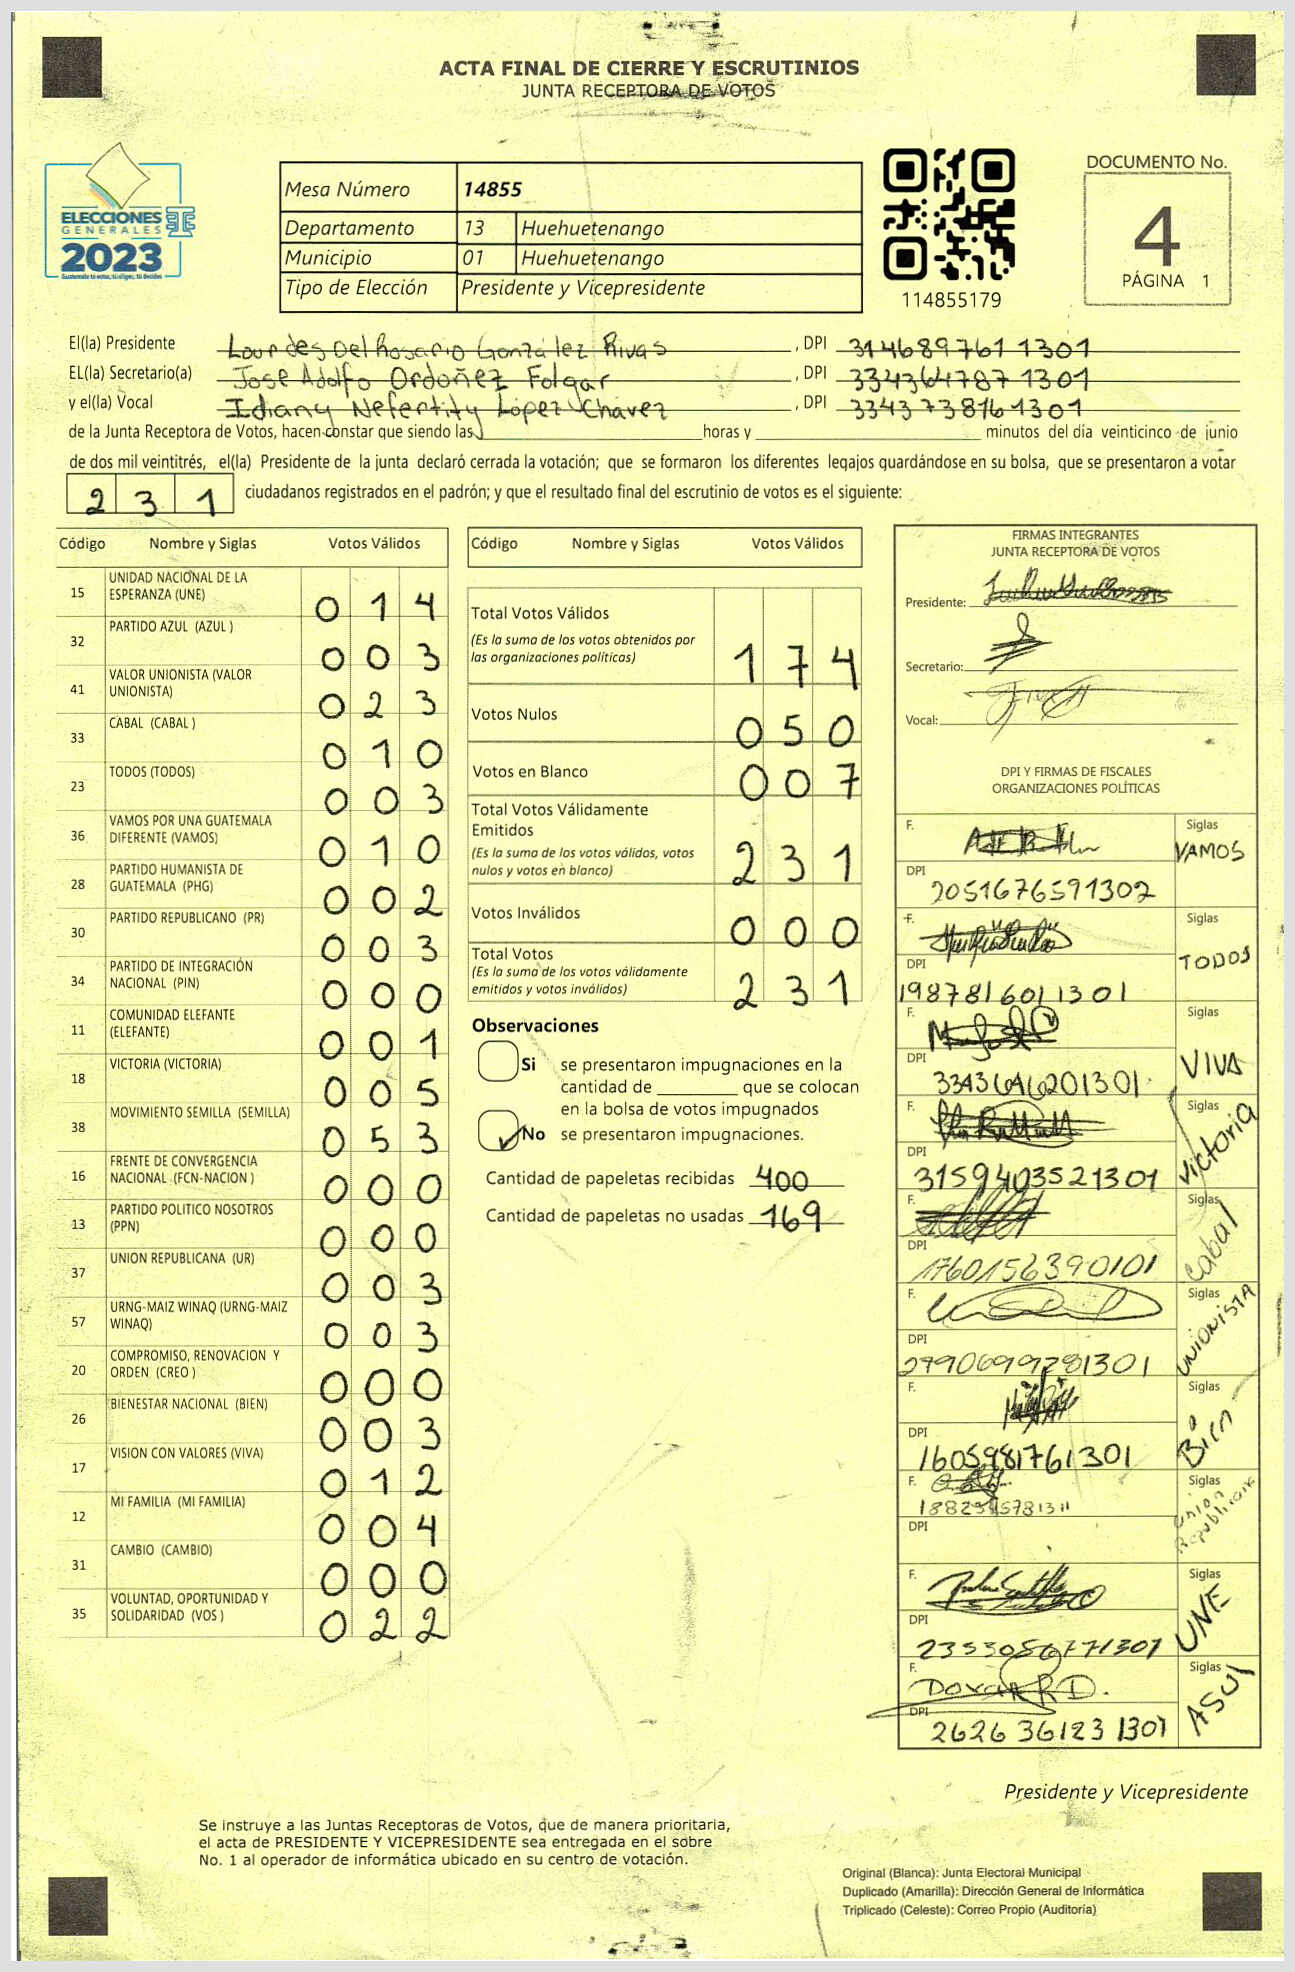 ACTA FINAL DE CIERRE Y ESCRUTINIOS
JUNTA RECEPTORA DE VOTOS
ELECCIONES
GENERALES
2023
Guatemala tú votas, tú eliges, tú decides
Mesa Número 14855
Departamento 13 Huehuetenango
Municipio 01 Huehuetenango
Tipo de Elección Presidente y Vicepresidente
114855179
DOCUMENTO No.
4
PÁGINA 1
El(la) Presidente Lourdes Del Rosario González Rivas , DPI 3146897611301
EL(la) Secretario(a) Jose Adolfo Ordoñez Folgar , DPI 3343647871301
y el(la) Vocal Idiany Nefertity López Chávez , DPI 3343738161301
de la Junta Receptora de Votos, hacen constar que siendo las horas y minutos del día veinticinco de junio
de dos mil veintitrés, el(la) Presidente de la junta declaró cerrada la votación; que se formaron los diferentes legajos guardándose en su bolsa, que se presentaron a votar
231 ciudadanos registrados en el padrón; y que el resultado final del escrutinio de votos es el siguiente:
Código Nombre y Siglas Votos Válidos
15 UNIDAD NACIONAL DE LA ESPERANZA (UNE) 014
32 PARTIDO AZUL (AZUL ) 003
41 VALOR UNIONISTA (VALOR UNIONISTA) 023
33 CABAL (CABAL ) 010
23 TODOS (TODOS) 003
36 VAMOS POR UNA GUATEMALA DIFERENTE (VAMOS) 010
28 PARTIDO HUMANISTA DE GUATEMALA (PHG) 002
30 PARTIDO REPUBLICANO (PR) 003
34 PARTIDO DE INTEGRACIÓN NACIONAL (PIN) 000
11 COMUNIDAD ELEFANTE (ELEFANTE) 001
18 VICTORIA (VICTORIA) 005
38 MOVIMIENTO SEMILLA (SEMILLA) 053
16 FRENTE DE CONVERGENCIA NACIONAL (FCN-NACION ) 000
13 PARTIDO POLITICO NOSOTROS (PPN) 000
37 UNION REPUBLICANA (UR) 003
57 URNG-MAIZ WINAQ (URNG-MAIZ WINAQ) 003
20 COMPROMISO, RENOVACION Y ORDEN (CREO ) 000
26 BIENESTAR NACIONAL (BIEN) 003
17 VISION CON VALORES (VIVA) 012
12 MI FAMILIA (MI FAMILIA) 004
31 CAMBIO (CAMBIO) 000
35 VOLUNTAD, OPORTUNIDAD Y SOLIDARIDAD (VOS ) 022
Código Nombre y Siglas Votos Válidos
Total Votos Válidos 174
(Es la suma de los votos obtenidos por
las organizaciones políticas)
Votos Nulos 050
Votos en Blanco 007
Total Votos Válidamente
Emitidos 231
(Es la suma de los votos válidos, votos
nulos y votos en blanco)
Votos Inválidos 000
Total Votos 231
(Es la suma de los votos válidamente
emitidos y votos inválidos)
Observaciones
Si se presentaron impugnaciones en la
cantidad de que se colocan
en la bolsa de votos impugnados
No se presentaron impugnaciones.
Cantidad de papeletas recibidas 400
Cantidad de papeletas no usadas 169
FIRMAS INTEGRANTES
JUNTA RECEPTORA DE VOTOS
Presidente:
Secretario:
Vocal:
DPI Y FIRMAS DE FISCALES
ORGANIZACIONES POLÍTICAS
F. Siglas
VAMOS
DPI
2051676591302
F. Siglas
TODOS
DPI
1987816011301
F. Siglas
VIVA
DPI
F. Siglas
Victoria
DPI
3159403521301
F. Siglas
Cabal
DPI
1760156390101
F. Siglas
UNIONISTA
DPI
F. Siglas
Bien
DPI
1605981761301
F. Siglas
Union
Republicana
DPI
F. Siglas
UNE
DPI
F. Siglas
DPI
2626361231301
Presidente y Vicepresidente
Se instruye a las Juntas Receptoras de Votos, que de manera prioritaria,
el acta de PRESIDENTE Y VICEPRESIDENTE sea entregada en el sobre
No. 1 al operador de informática ubicado en su centro de votación.
Original (Blanca): Junta Electoral Municipal
Duplicado (Amarilla): Dirección General de Informática
Triplicado (Celeste): Correo Propio (Auditoría)